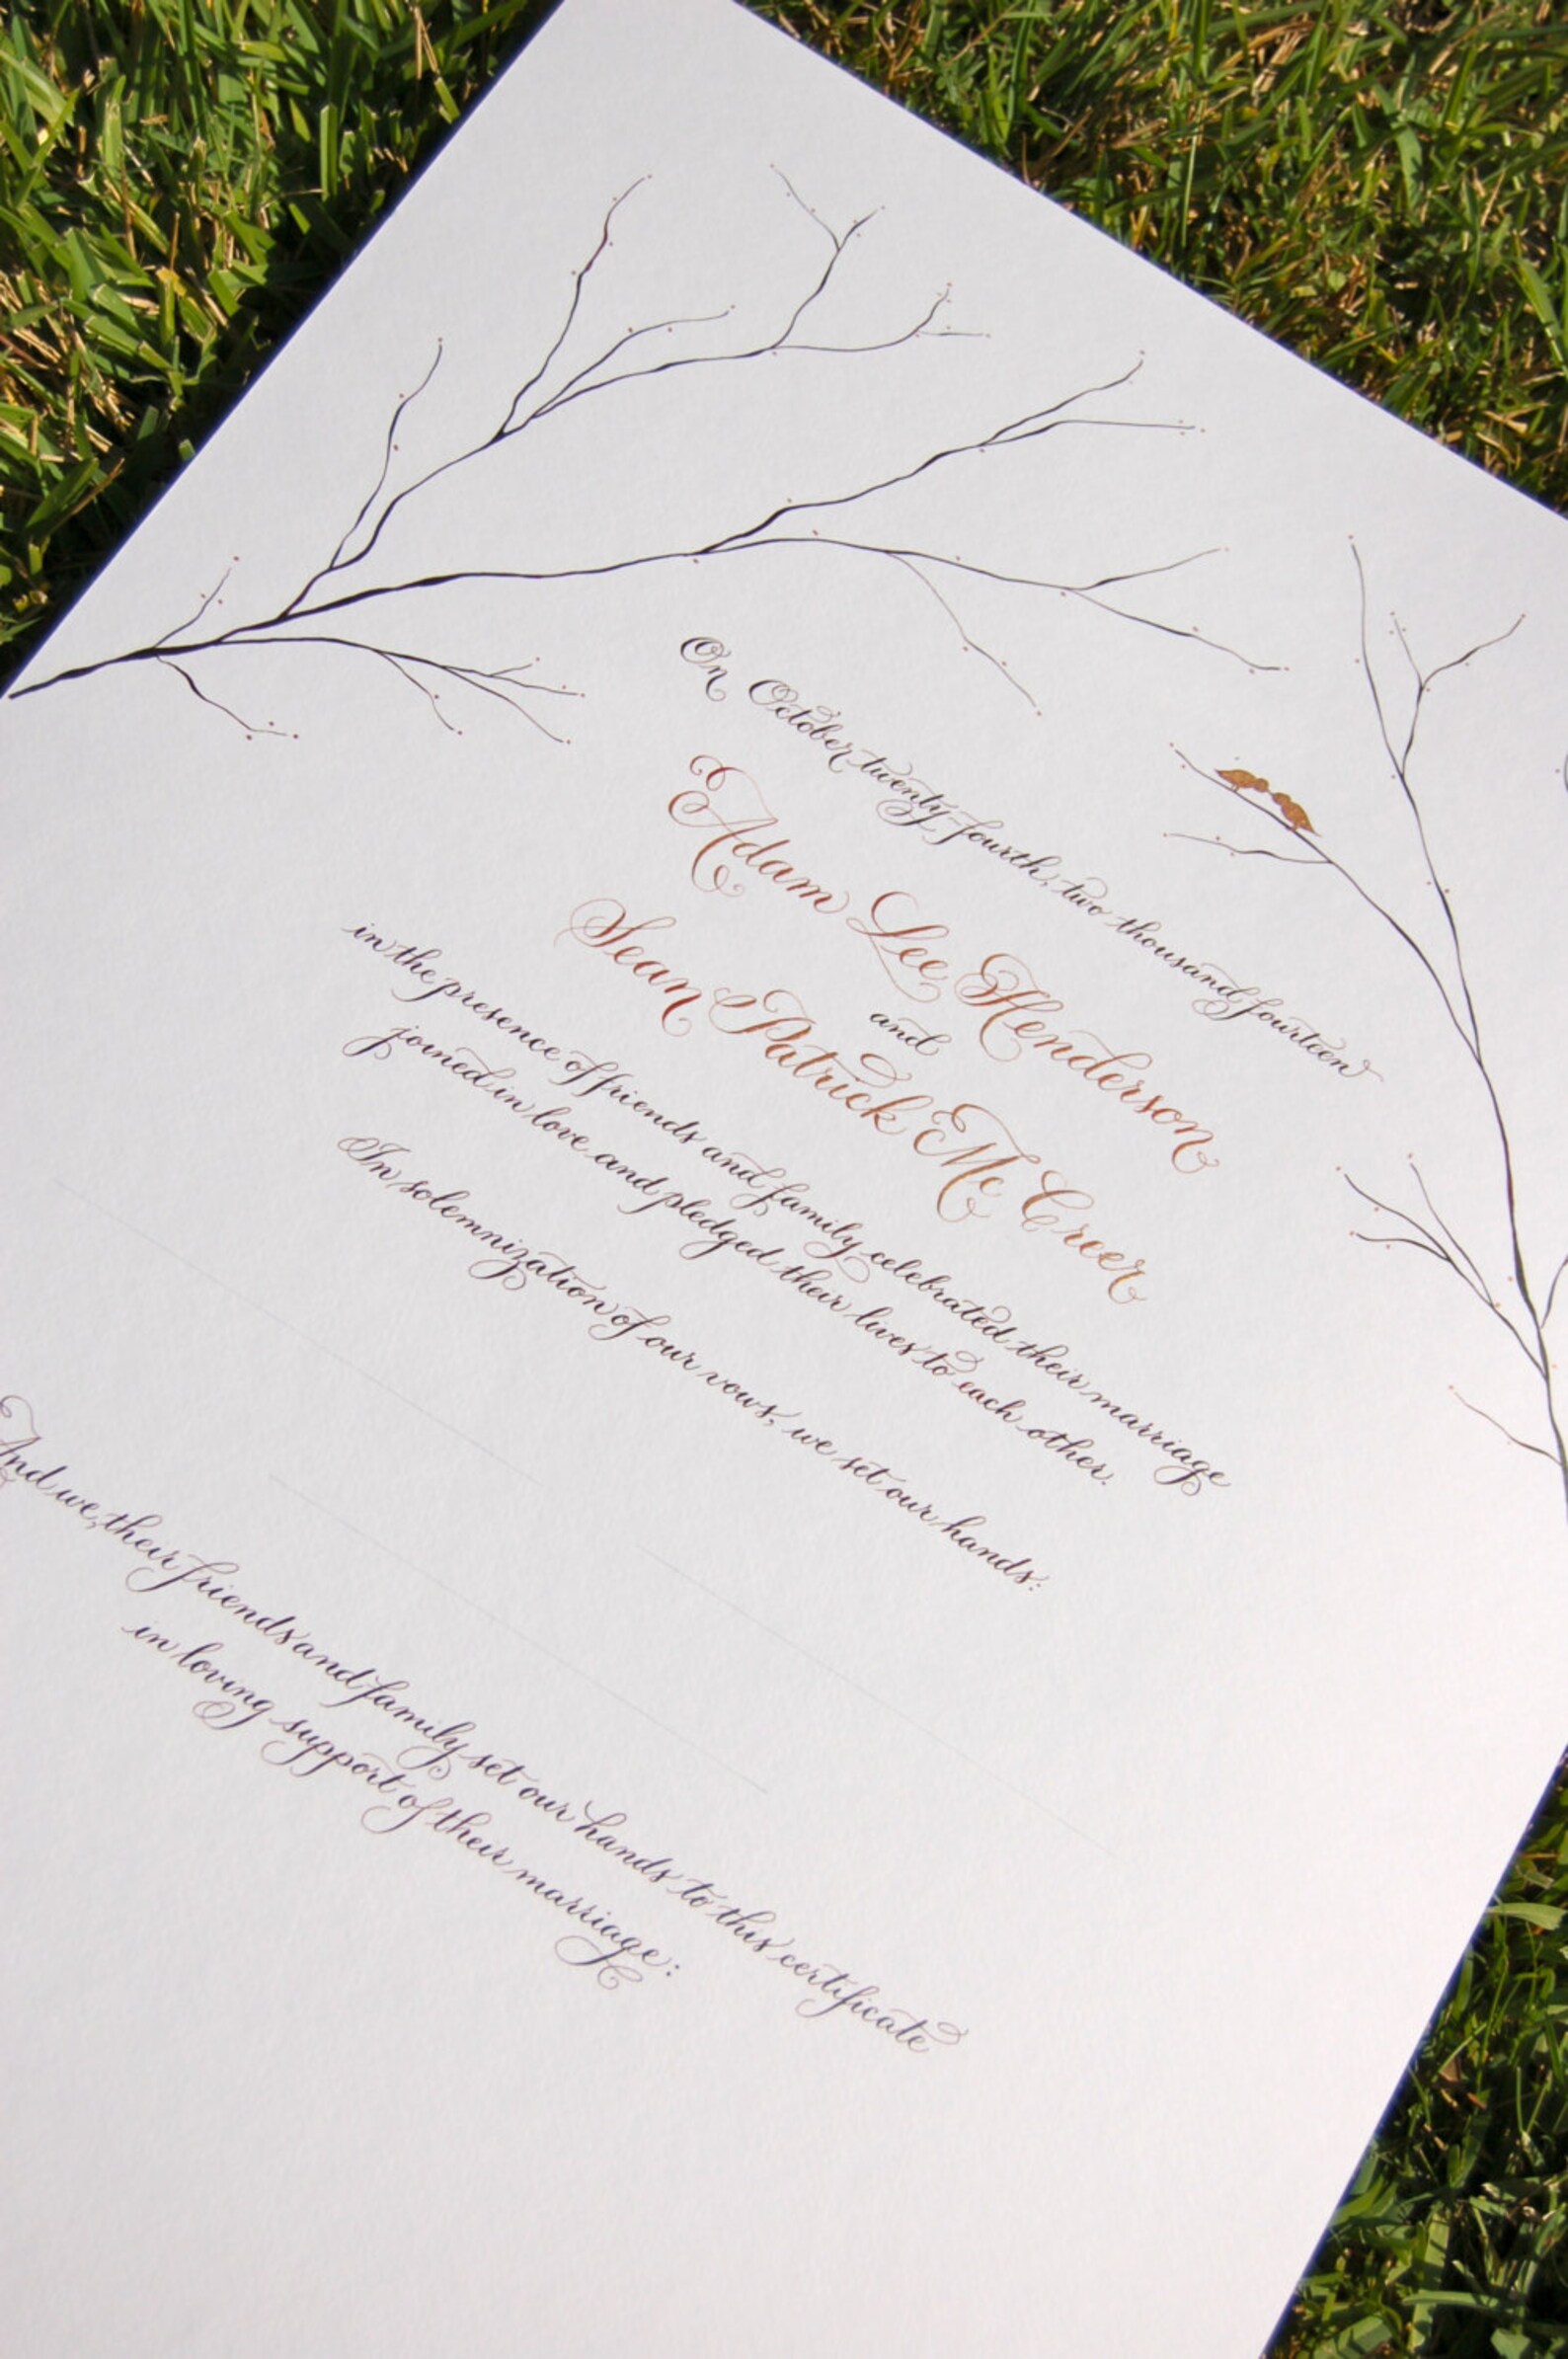 On October twenty-fourth, two thousand fourteen
Adam Lee Henderson
and
Sean Patrick Mc Creer
in the presence of friends and family celebrated their marriage
joined in love and pledged their lives to each other.
In solemnization of our vows, we set our hands:
And we, their friends and family set our hands to this certificate
in loving support of their marriage: